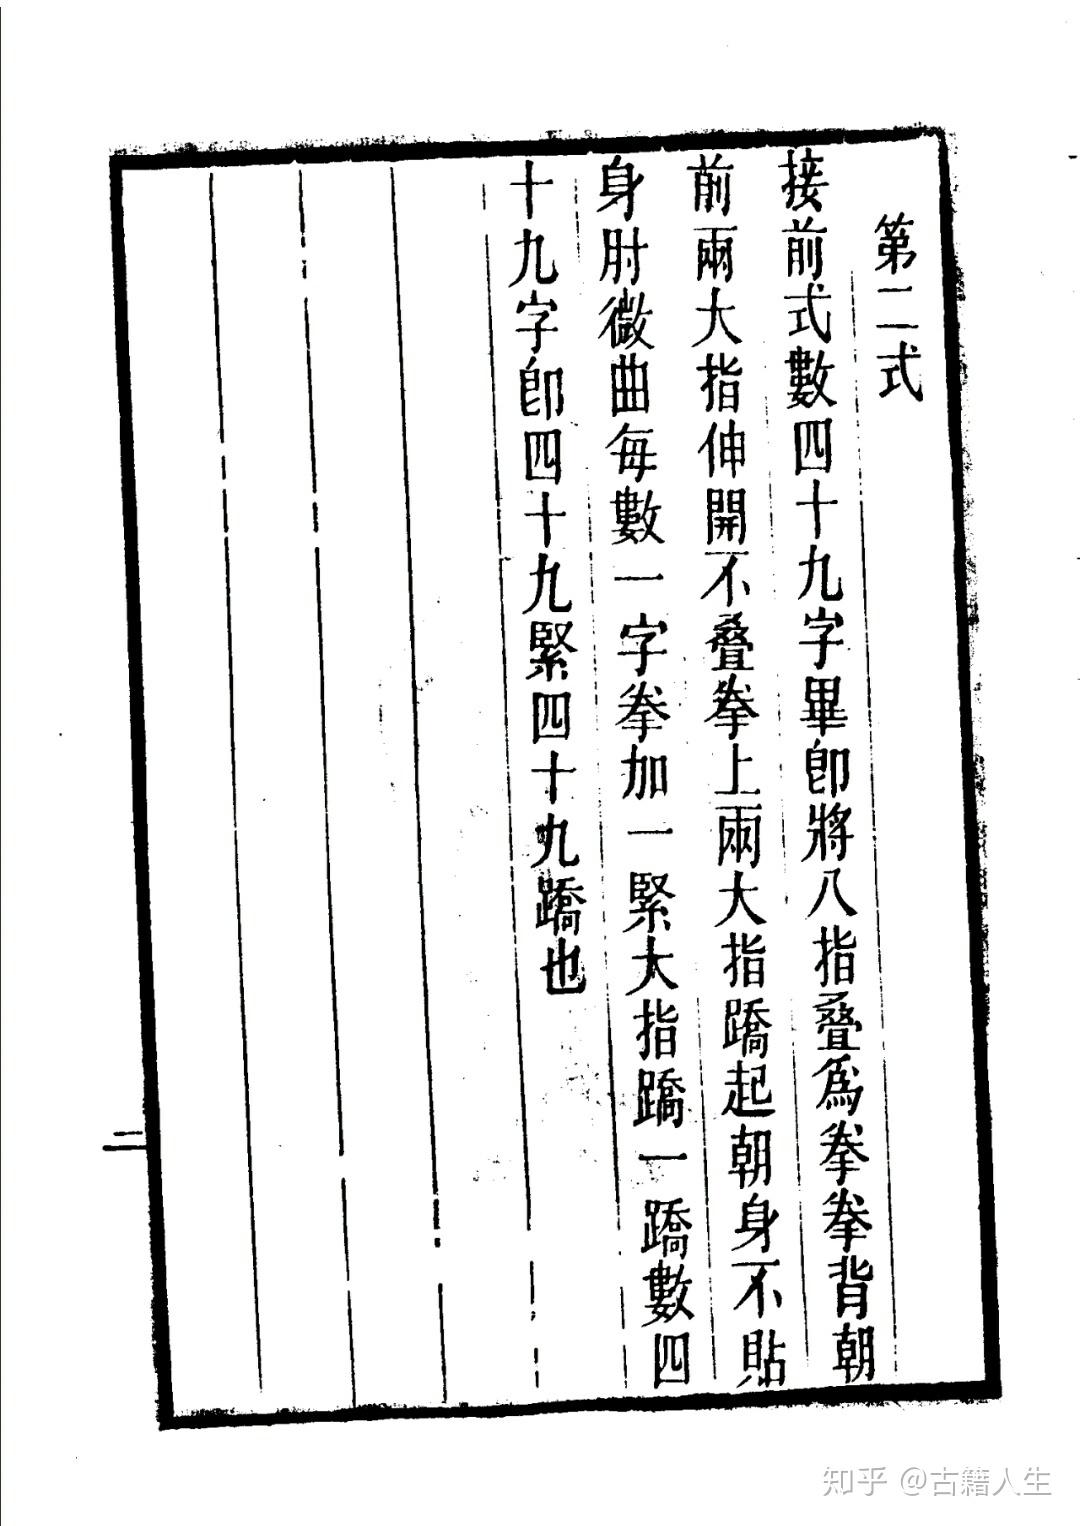 第二式
接前式數四十九字畢卽將八指叠爲拳拳背朝
前兩大指伸開不叠拳上兩大指蹻起朝身不貼
身肘微曲每數一字拳加一緊大指蹻一蹻數四
十九字卽四十九緊四十九蹻也
二
知乎 @古籍人生